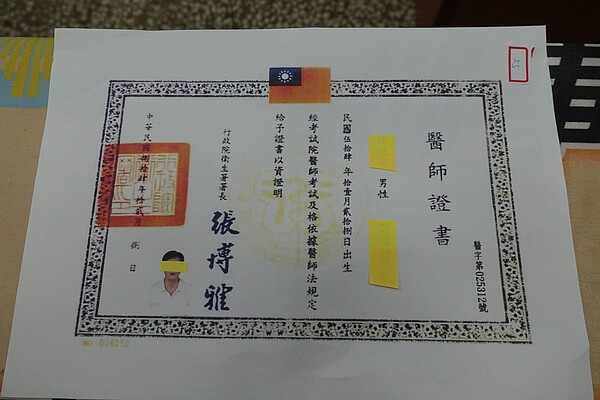 醫師證書
醫字第025312號
男性
民國伍拾肆年拾壹月貳拾捌日出生
經考試院醫師考試及格依據醫師法規定
給予證書以資證明
行政院衛生署署長
張博雅
中華民國捌拾肆年拾貳月捌日